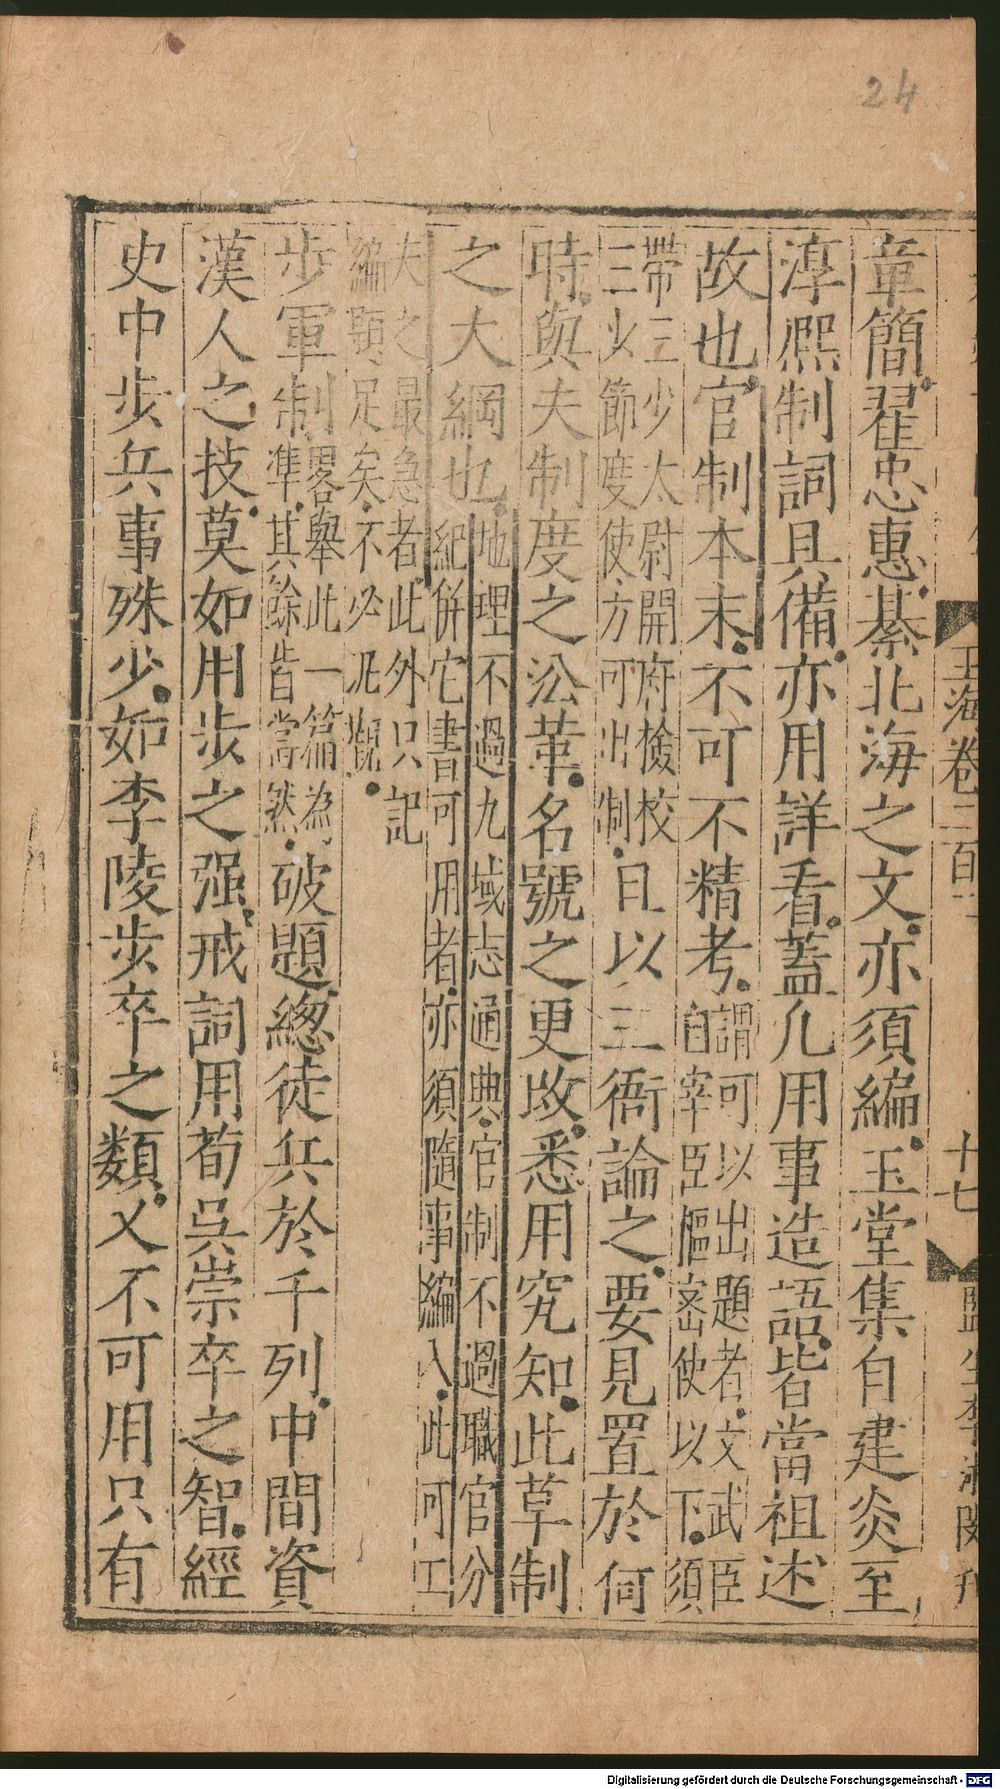 24
玉海卷二百二
十七
章簡翟忠惠綦北海之文亦須編玉堂集自建炎至
淳熙制詞具備亦用詳看蓋凡用事造語皆當祖述
故也官制本末不可不精考謂可以出題者文武臣
自宰臣樞密使以下須
帶三少太尉開府檢校
三少節度使方可出制且以三衙論之要見置於何
時與夫制度之沿革名號之更改悉用究知此草制
之大綱也地理不過九域志通典官制不過職官分
紀併它書可用者亦須隨事編入此可工
夫之最急者此外只記
編題足矣不必泥觀
步軍制畧舉此一篇為
準其餘皆當然破題總徒兵於千列中間資
漢人之技莫如用步之强戒詞用荀吳崇卒之智經
史中步兵事殊少如李陵步卒之類又不可用只有
Digitalisierung gefördert durch die Deutsche Forschungsgemeinschaft - DFG